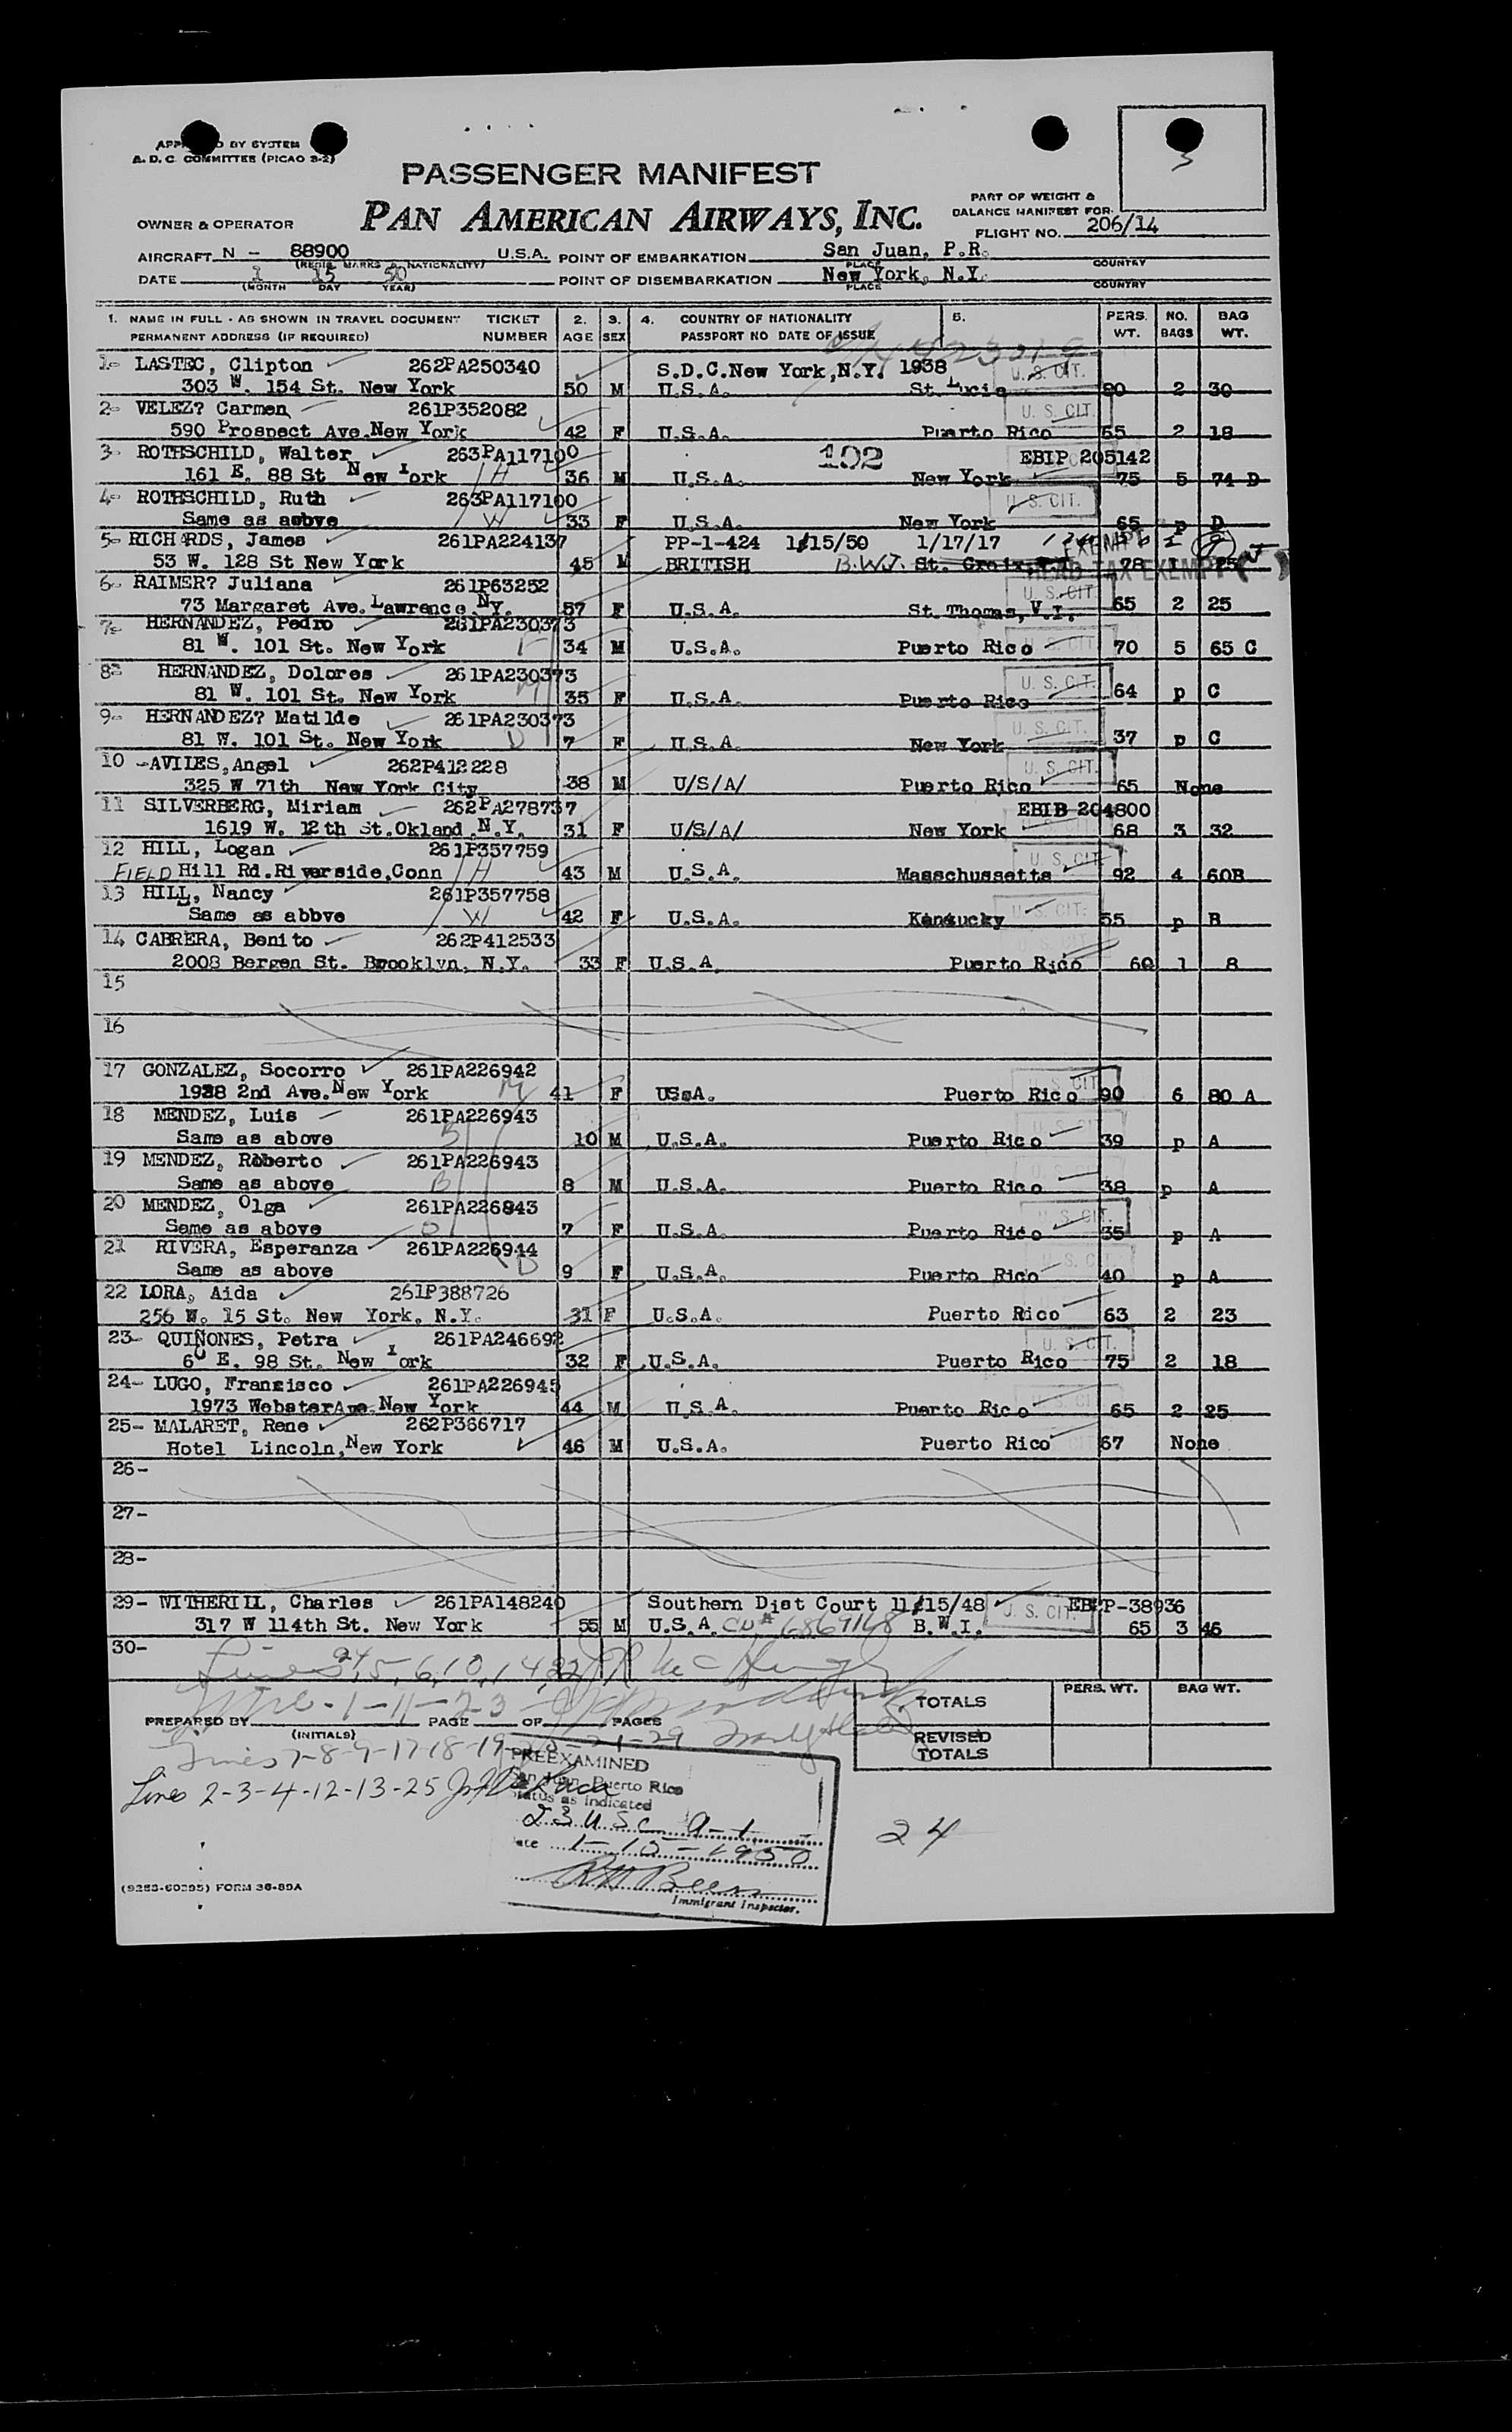 A. D. C. COMMITTEE (PICAO S-2)
PASSENGER MANIFEST
PAN AMERICAN AIRWAYS, INC.
OWNER & OPERATOR
PART OF WEIGHT &
BALANCE MANIFEST FOR
FLIGHT NO. 206/14
AIRCRAFT N - 88900 U.S.A. POINT OF EMBARKATION San Juan, P.R.
(REGIS. MARKS & NATIONALITY) PLACE COUNTRY
DATE 1 15 50 POINT OF DISEMBARKATION New York, N.Y.
(MONTH DAY YEAR) PLACE COUNTRY
1. NAME IN FULL - AS SHOWN IN TRAVEL DOCUMENT TICKET 2. 3. 4. COUNTRY OF NATIONALITY 5. PERS. NO. BAG
PERMANENT ADDRESS (IF REQUIRED) NUMBER AGE SEX PASSPORT NO DATE OF ISSUE WT. BAGS WT.
1- LASTEC, Clipton 262PA250340 S.D.C.New York,N.Y. 1938 U. S. CIT.
303 W. 154 St. New York 50 M U.S.A. St. Lucia 80 2 30
2- VELEZ? Carmen 261P352082 U. S. CIT.
590 Prospect Ave.New York 42 F U.S.A. Puerto Rico 55 2 18
3- ROTHSCHILD, Walter 263PA117100 192 EBIP 205142
161 E. 88 St New York H 36 M U.S.A. New York 75 5 74 D
4- ROTHSCHILD, Ruth 263PA117100 U. S. CIT.
Same as aobve W 33 F U.S.A. New York 65 p D
5- RICHARDS, James 261PA224137 PP-1-424 1/15/50 1/17/17 EXEMPT
53 W. 128 St New York 45 M BRITISH B.W.I. St. Croix, V.I. 78 1 25 HEAD TAX EXEMPT
6- RAIMER? Juliana 261P63252 U. S. CIT.
73 Margaret Ave.Lawrence NY. 57 F U.S.A. St. Thomas, V.I. 65 2 25
7- HERNANDEZ, Pedro 261PA230373
81 W. 101 St. New York F 34 M U.S.A. Puerto Rico U. S. CIT 70 5 65 C
8- HERNANDEZ, Dolores 261PA230373 U. S. CIT.
81 W. 101 St. New York M 35 F U.S.A. Puerto Rico 64 p C
9- HERNANDEZ? Matilde 261PA230373 U. S. CIT.
81 W. 101 St. New York D 7 F U.S.A. New York 37 p C
10 -AVILES,Angel 262P412228 U. S. CIT.
325 W 71th New York City 38 M U/S/A/ Puerto Rico 65 None
11 SILVERBERG, Miriam 262PA278737 EBIB 204800
1619 W. 12th St.Okland N.Y. 31 F U/S/A/ New York 68 3 32
12 HILL, Logan 261P357759 U. S. CIT.
FIELD Hill Rd.Riverside,Conn H 43 M U.S.A. Masschussetts 92 4 60B
13 HILL, Nancy 261P357758
Same as abbve W 42 F U.S.A. Kentucky U. S. CIT. 55 p B
14 CABRERA, Benito 262P412533
2008 Bergen St. Brooklyn, N.Y. 33 F U.S.A Puerto Rico 60 1 8
15
16
17 GONZALEZ, Socorro 261PA226942
1938 2nd Ave.New York M 41 F USoA. Puerto Rico 90 6 80 A
18 MENDEZ, Luis 261PA226943
Same as above S 10 M U.S.A. Puerto Rico 39 p A
19 MENDEZ, Roberto 261PA226943
Same as above 8 M U.S.A. Puerto Rico 38 p A
20 MENDEZ, Olga 261PA226943
Same as above D 7 F U.S.A. Puerto Rico U. S. CIT. 35 p A
21 RIVERA, Esperanza 261PA226944
Same as above D 9 F U.S.A. Puerto Rico 40 p A
22 LORA, Aida 261P388726
256 W. 15 St. New York, N.Y. 31 F U.S.A. Puerto Rico 63 2 23
23- QUIÑONES, Petra 261PA246692 U. S. CIT.
60 E. 98 St. New York 32 F U.S.A. Puerto Rico 75 2 18
24- LUGO, Francisco 261PA226945
1973 WebsterAve.New York 44 M U.S.A. Puerto Rico 65 2 25
25- MALARET, Rene 262P366717
Hotel Lincoln,New York 46 M U.S.A. Puerto Rico 67 None
26-
27-
28-
29- WITHERILL, Charles 261PA148240 Southern Dist Court 11/15/48 U. S. CIT.
317 W 114th St. New York 55 M U.S.A. B.W.I. 65 3 46
30-
TOTALS PERS. WT. BAG WT.
PREPARED BY PAGE OF PAGES
(INITIALS)
REVISED
TOTALS
Lines 2-3-4-12-13-25
PREEXAMINED
San Juan, Puerto Rico
Status as indicated
23 USC A-1
Date 1-15-1950
Immigrant Inspector.
24
(9253-60395) FORM 36-89A